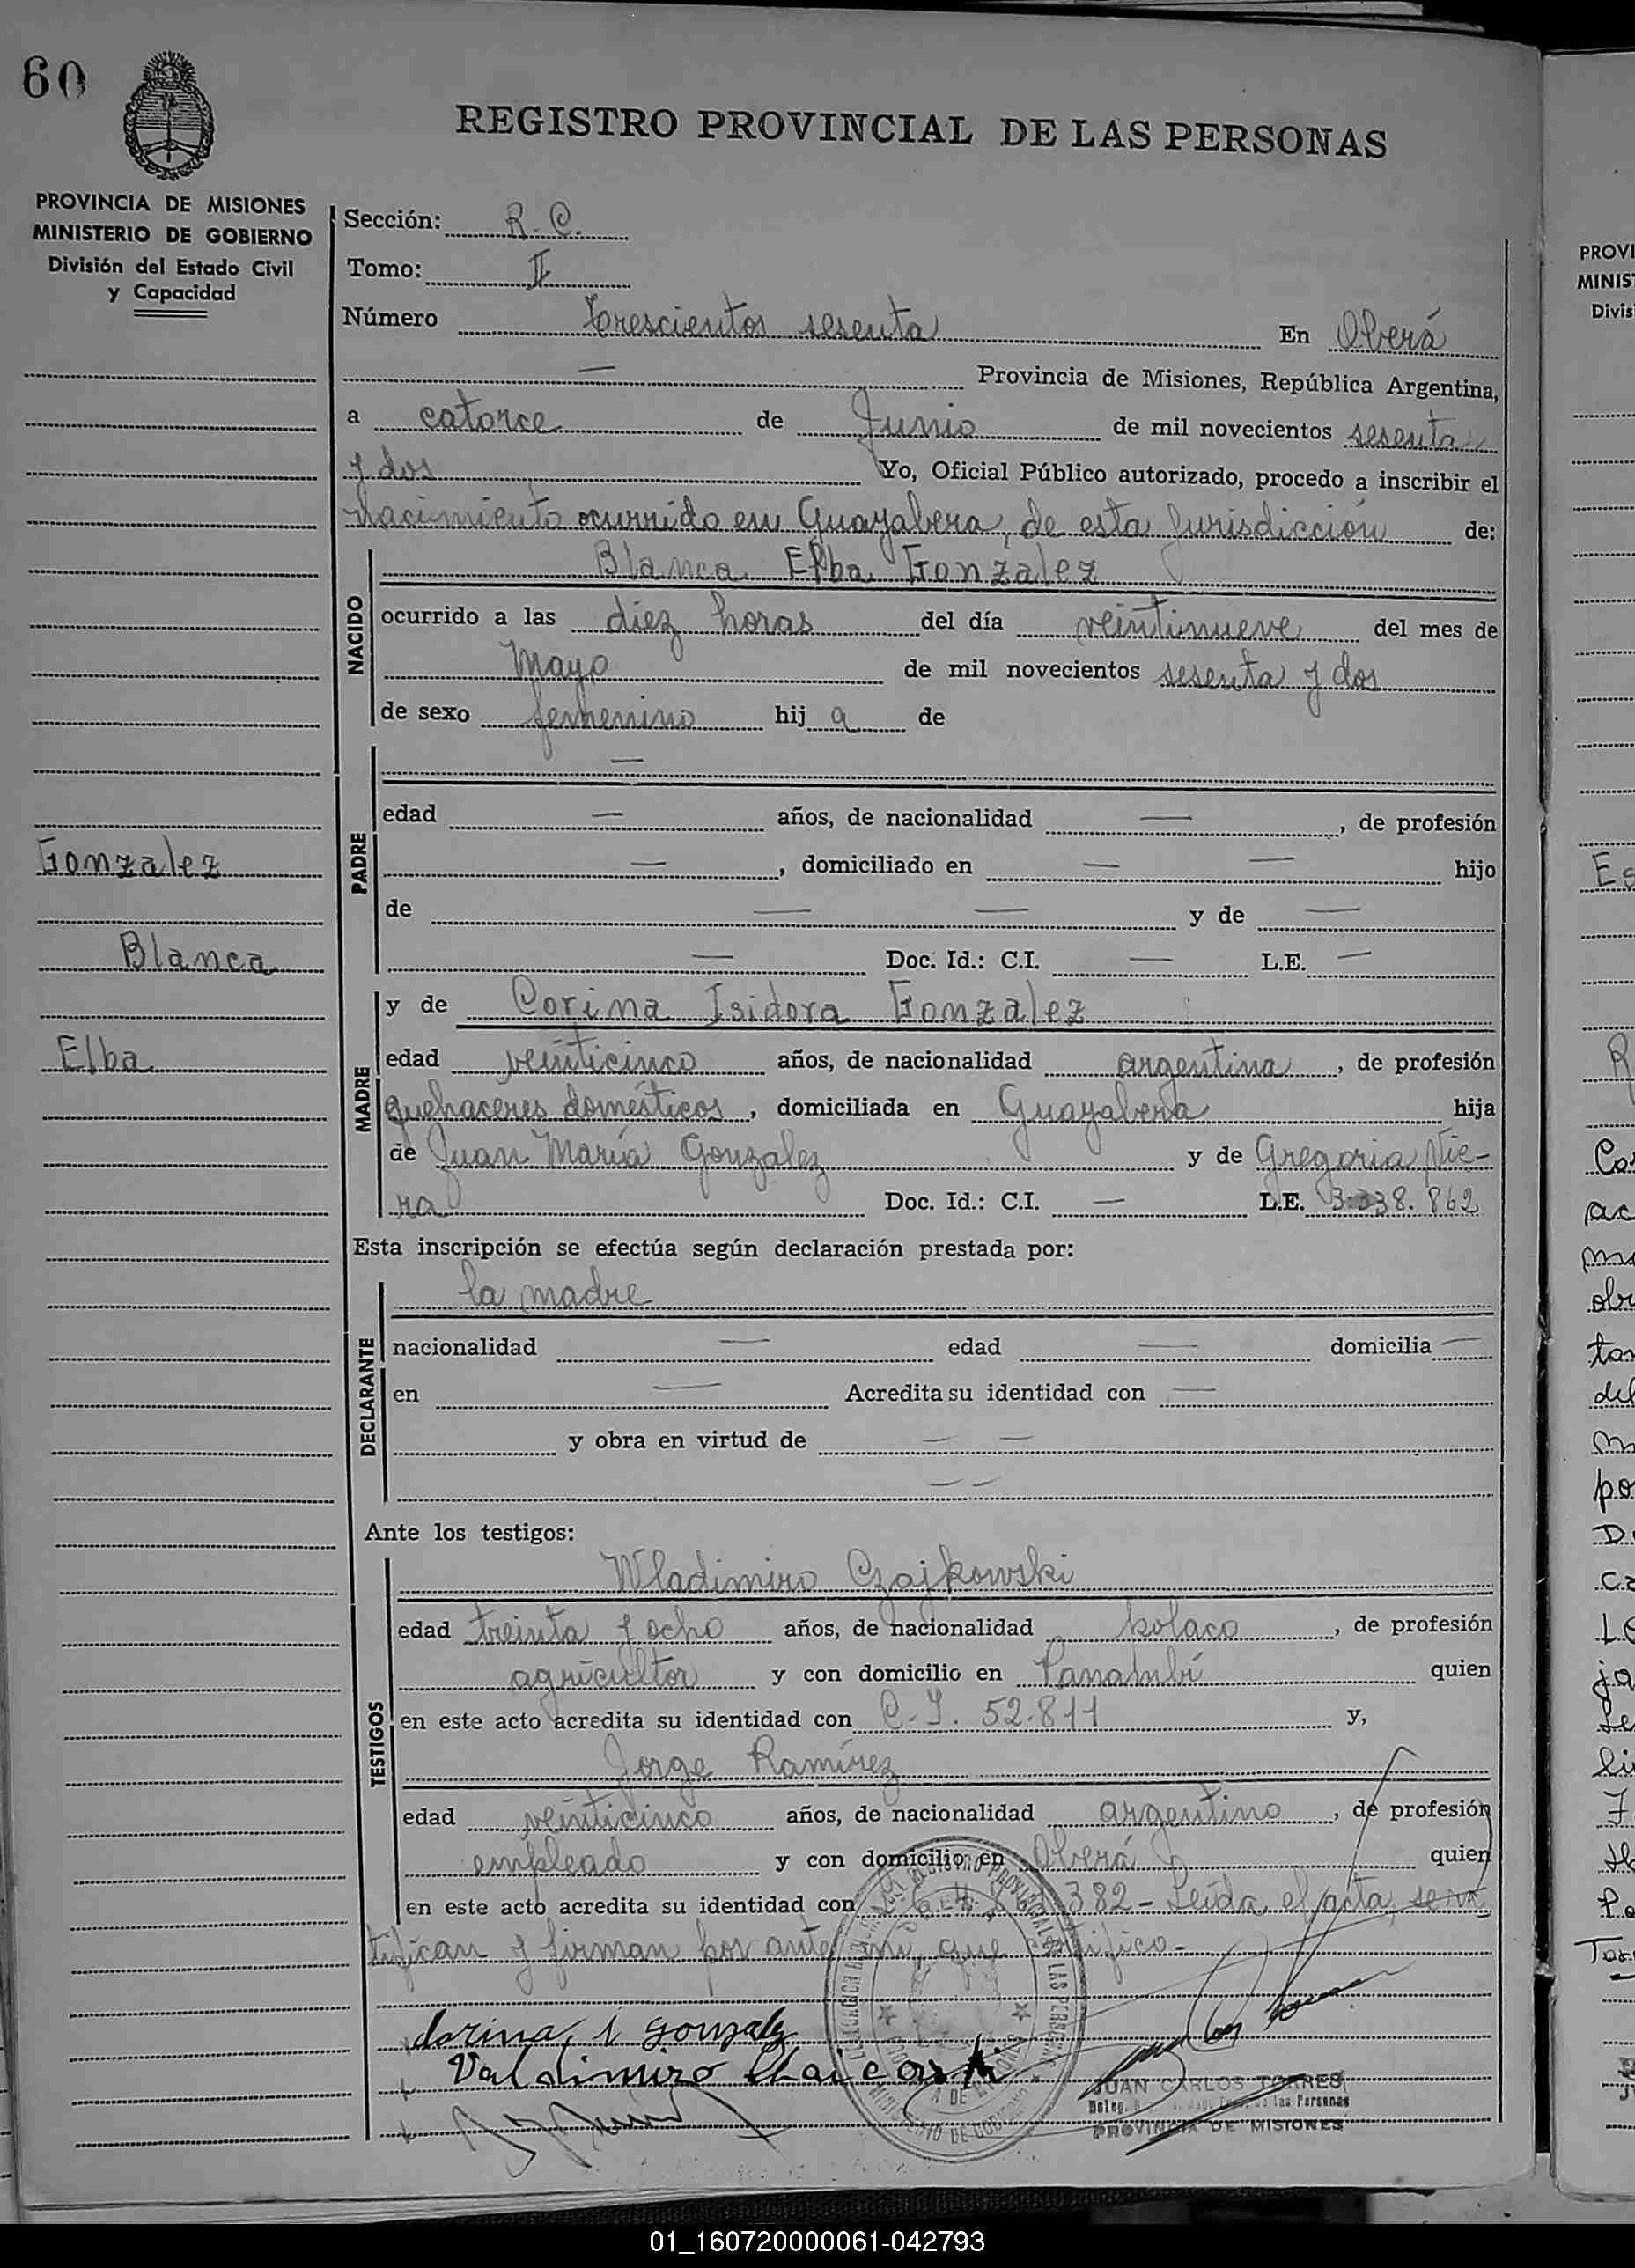 60
REGISTRO PROVINCIAL DE LAS PERSONAS
PROVINCIA DE MISIONES
MINISTERIO DE GOBIERNO
División del Estado Civil
y Capacidad
Sección: R. C.
Tomo: II
Número Trescientos sesenta En Oberá
— Provincia de Misiones, República Argentina,
a catorce de Junio de mil novecientos sesenta
y dos Yo, Oficial Público autorizado, procedo a inscribir el
nacimiento ocurrido en Guayabera, de esta Jurisdicción de:
NACIDO
Blanca Elba Gonzalez
ocurrido a las diez horas del día veintinueve del mes de
Mayo de mil novecientos sesenta y dos
de sexo femenino hij a de
PADRE
—
edad — años, de nacionalidad —, de profesión
—, domiciliado en — — hijo
de — — y de —
— Doc. Id.: C.I. — L.E. —
Gonzalez
Blanca
Elba
MADRE
y de Corina Isidora Gonzalez
edad veinticinco años, de nacionalidad argentina, de profesión
quehaceres domésticos, domiciliada en Guayabera hija
de Juan María Gonzalez y de Gregoria Vie-
ra Doc. Id.: C.I. — L.E. 3.338.862
Esta inscripción se efectúa según declaración prestada por:
DECLARANTE
la madre
nacionalidad — edad — domicilia —
en — Acredita su identidad con —
y obra en virtud de — —
— —
Ante los testigos:
TESTIGOS
Wladimiro Czajkowski
edad treinta y ocho años, de nacionalidad polaco, de profesión
agricultor y con domicilio en Panambí quien
en este acto acredita su identidad con C.I. 52.811 y,
Jorge Ramírez
edad veinticinco años, de nacionalidad argentino, de profesión
empleado y con domicilio en Oberá quien
en este acto acredita su identidad con 382 - Leída, el acta, se ra
tifican y firman por ante mi, que certifico.-
Corina, I Gonzalez
Valdimiro
JUAN CARLOS TORRES
las Personas
PROVINCIA DE MISIONES
01_160720000061-042793